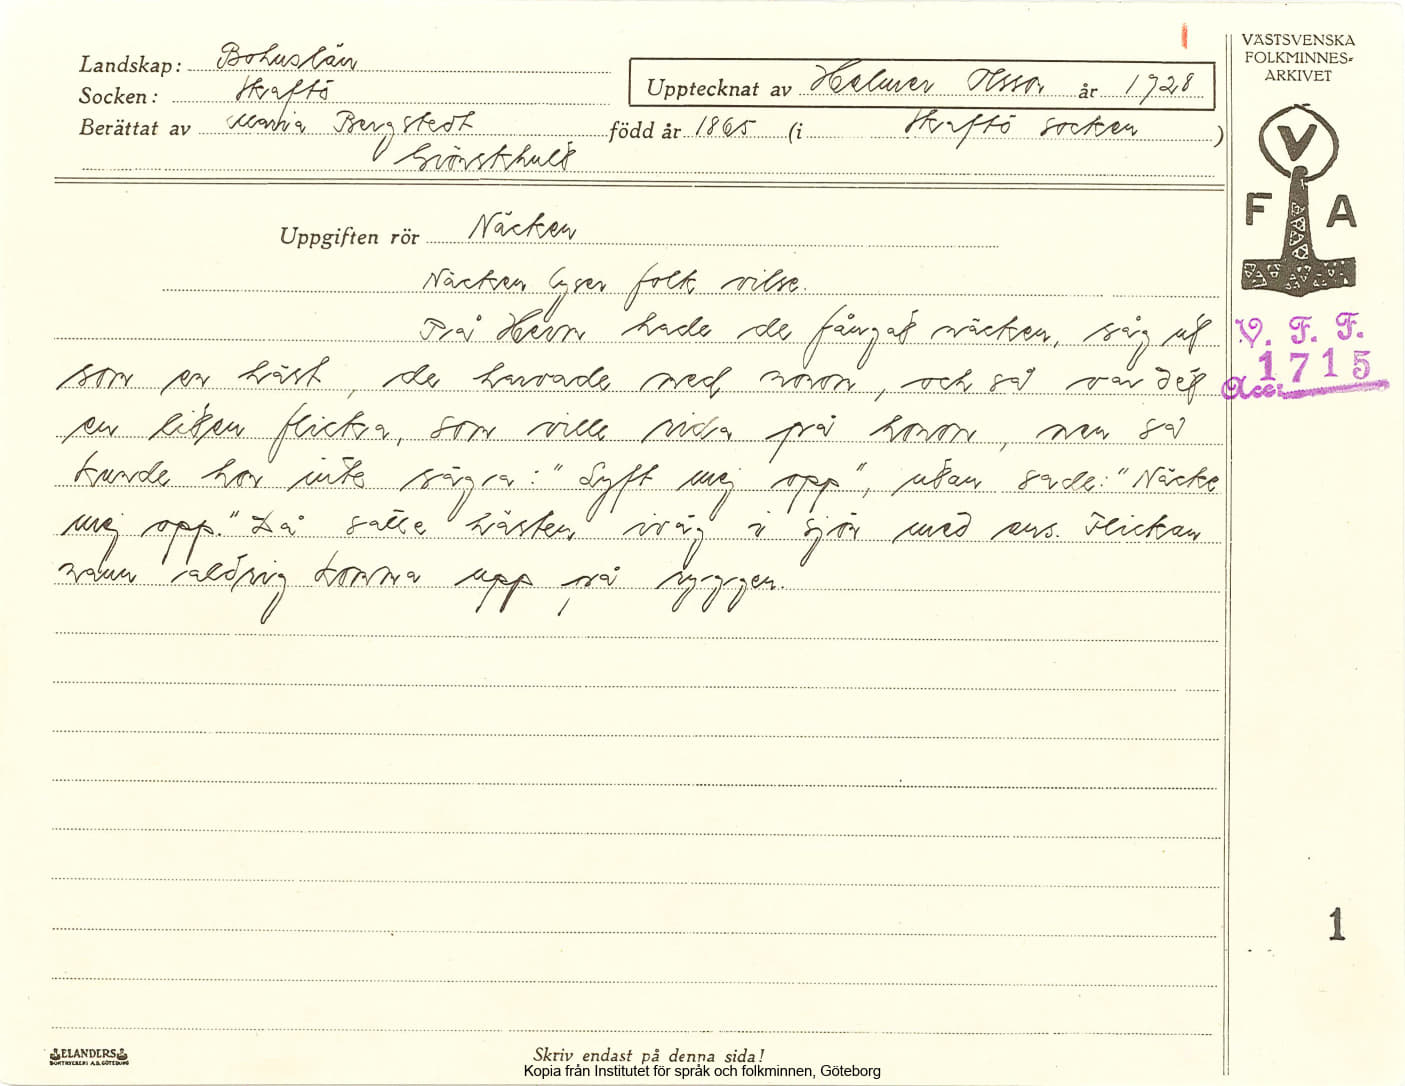 Landskap: Bohuslän
Socken: Skaftö
Upptecknat av Helmer Olsson år 1928
Berättat av Maria Bergstedt född år 1865 (i Skaftö socken)
Grönskhult
Uppgiften rör Näcken
Näcken lyser folk vilse.
På Hern hade de fångat näcken, såg ut
som en häst, de harvade med honom, och så var det
en liten flicka, som ville rida på honom, men så
kunde hon inte sägra: "Lyft mej opp", utan sade: "Näcke
mej opp." Då satte hästen iväg i sjön med ens. Flickan
hann aldrig komma upp på ryggen.
Skriv endast på denna sida!
Kopia från Institutet för språk och folkminnen, Göteborg
ELANDERS
BOKTRYCKERI A.B. GÖTEBORG
VÄSTSVENSKA
FOLKMINNES-
ARKIVET
V
F A
V. F. F.
Acc: 1715
1